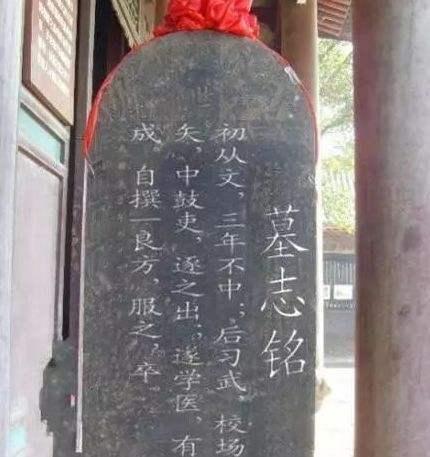 墓志铭
初从文，三年不中；后习武，校场
矢，中鼓吏，逐之出；遂学医，有
成 自撰一良方，服之，卒